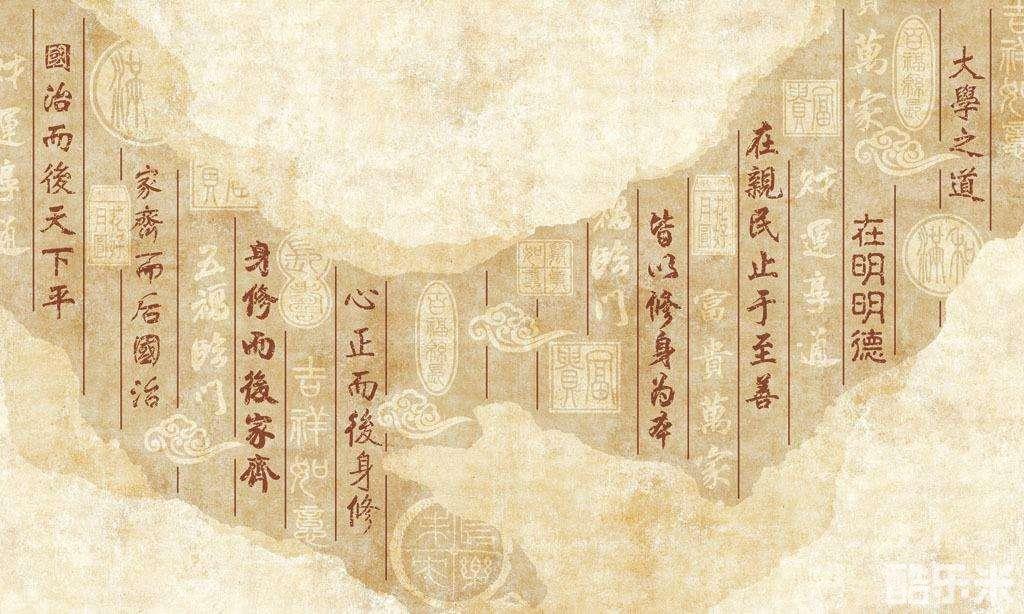 大學之道
在明明德
在親民止于至善
皆以修身为本
心正而後身修
身修而後家齊
家齊而后國治
國治而後天下平
吉祥如意
萬家
財運亨通
富貴
花好月圓
富貴萬家
臨門
富貴
吉祥如意
五福臨門
財運亨通
酷乐米